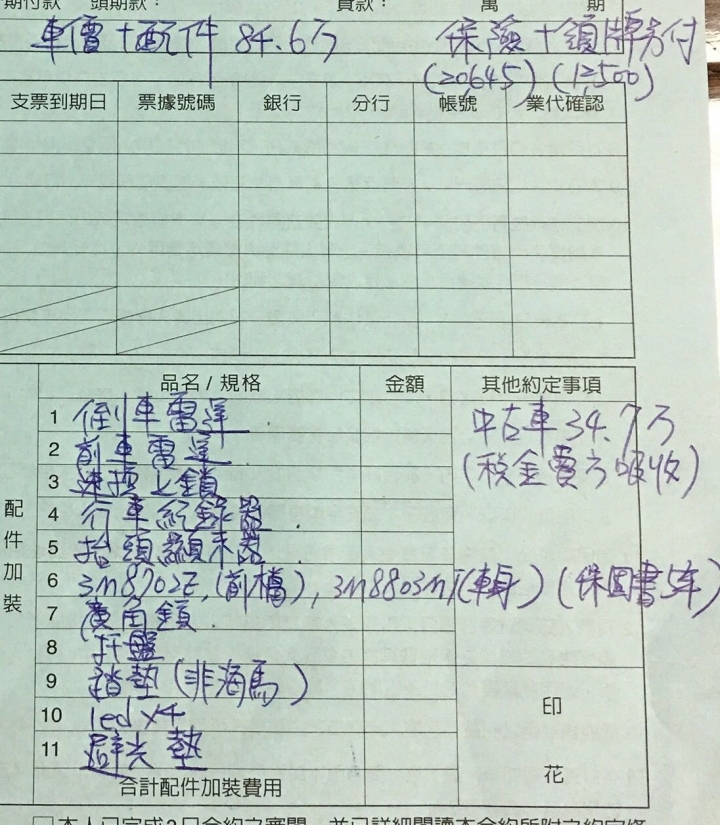 期付款 頭期款： 貸款： 萬 期
車價+配件 84.6万 保險+領牌另付
(20,645) (12,500)
支票到期日 票據號碼 銀行 分行 帳號 業代確認
品名/規格 金額 其他約定事項
1 倒車雷達 中古車34.7万
2 前車雷達 (稅金費方吸收)
3 速控上鎖
4 行車紀錄器
5 抬頭顯示器
6 3m8702E,(前檔), 3m8803m(車身) (保固書5年)
7 廣角鏡
8 托盤
9 踏墊(非海馬)
10 led x4
11 避光墊
配件加裝
印
花
合計配件加裝費用
□本人已完成3日合約之審閱，並已詳細閱讀本合約所附之約定條